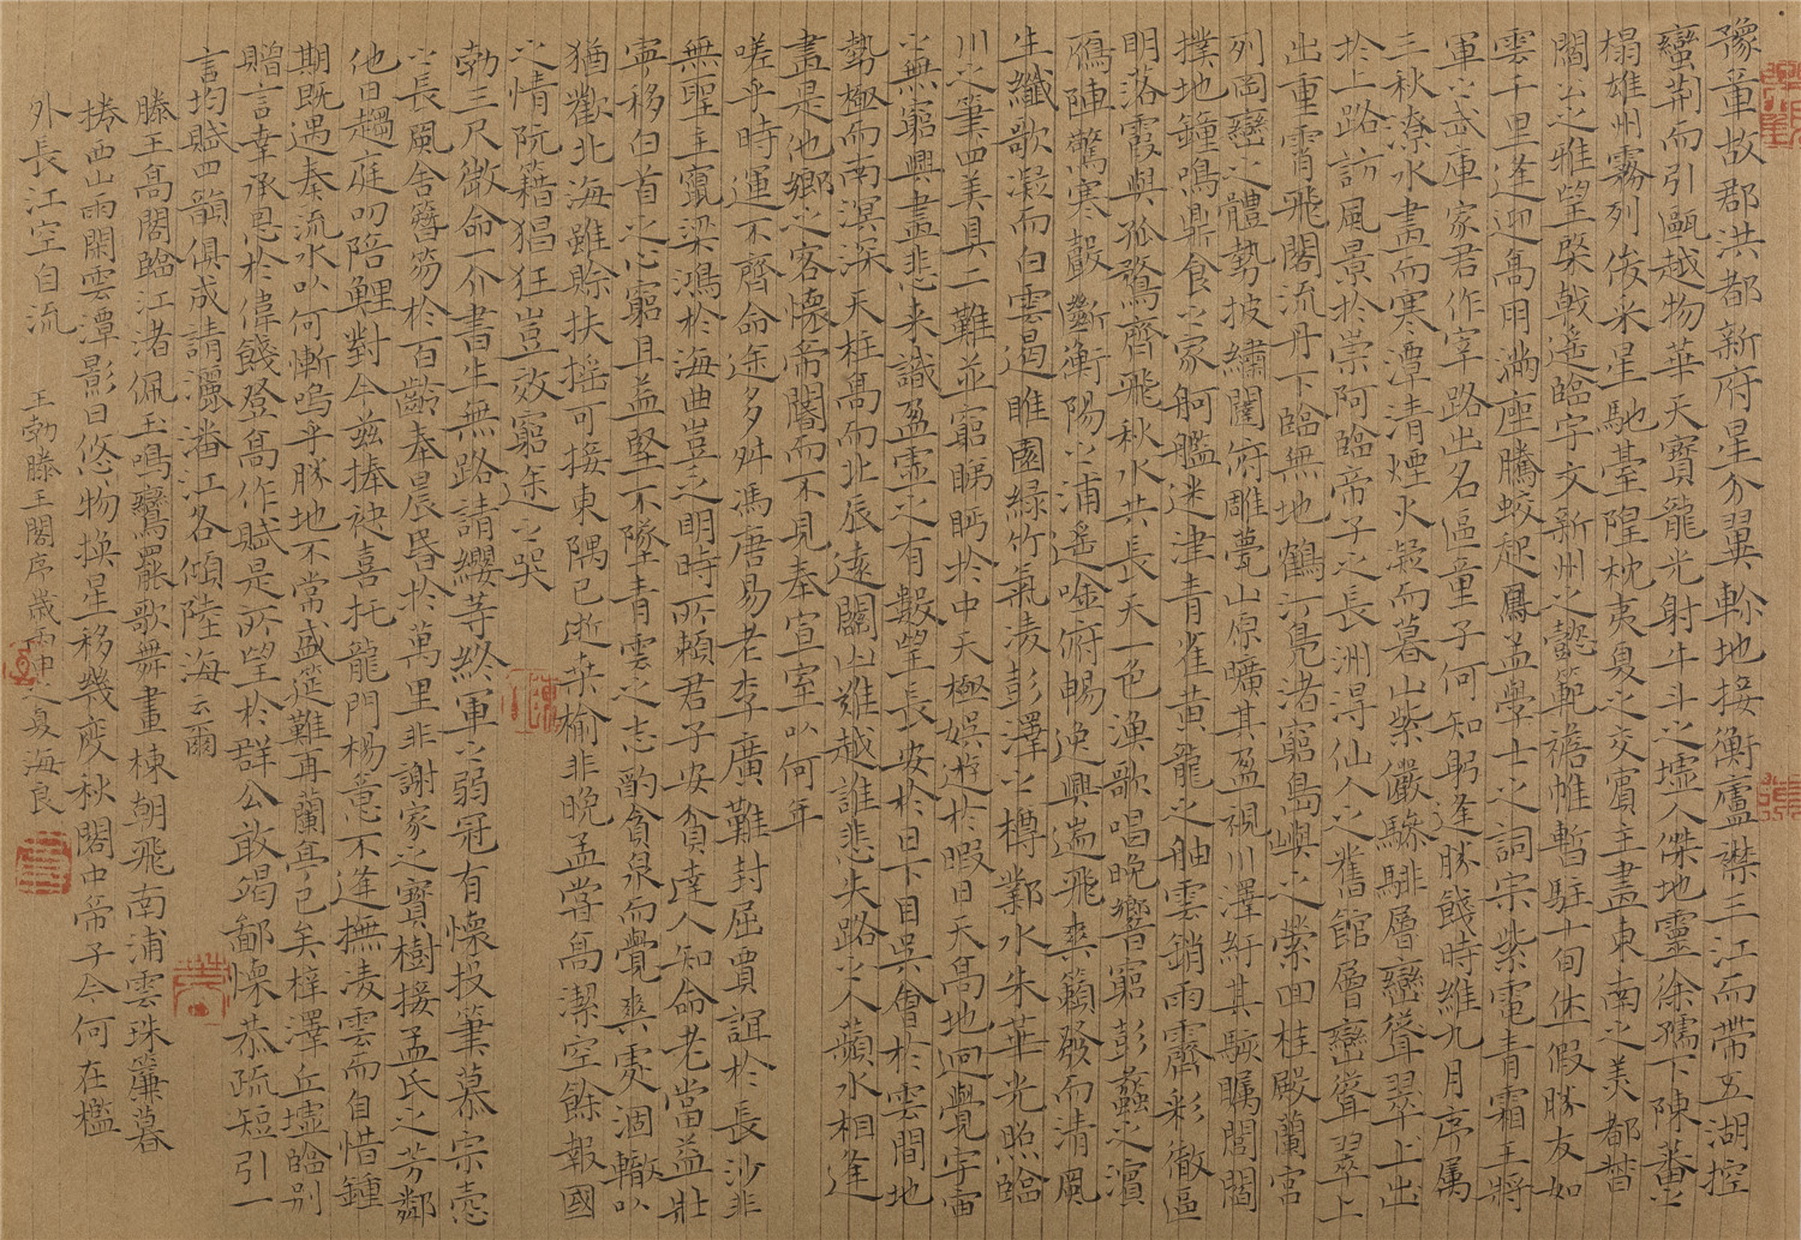 豫章故郡洪都新府星分翼軫地接衡廬襟三江而帶五湖控
蠻荊而引甌越物華天寶龍光射牛斗之墟人傑地靈徐孺下陳蕃之
榻雄州霧列俊采星馳臺隍枕夷夏之交賓主盡東南之美都督
閻公之雅望棨戟遙臨宇文新州之懿範襜帷暫駐十旬休假勝友如
雲千里逢迎高朋滿座騰蛟起鳳孟學士之詞宗紫電青霜王將
軍之武庫家君作宰路出名區童子何知躬逢勝餞時維九月序属
三秋潦水盡而寒潭清煙火凝而暮山紫儼驂騑層巒聳翠上出
於上路訪風景於崇阿臨帝子之長洲得仙人之舊館層巒聳翠上
出重霄飛閣流丹下臨無地鶴汀鳧渚窮島嶼之縈回桂殿蘭宮
列岡巒之體勢披繡闥俯雕甍山原曠其盈視川澤紆其駭矚閭閻
撲地鐘鳴鼎食之家舸艦迷津青雀黃龍之舳雲銷雨霽彩徹區
明落霞與孤鶩齊飛秋水共長天一色漁歌唱晚響窮彭蠡之濱
鴈陣驚寒聲斷衡陽之浦遙唫俯暢逸興遄飛爽籟發而清風
生纖歌凝而白雲遏睢園綠竹氣凌彭澤之樽鄴水朱華光照臨
川之筆四美具二難並窮睇眄於中天極娛遊於暇日天高地迥覺宇宙
之無窮興盡悲来識盈虛之有數望長安於日下目吳會於雲間地
勢極而南溟深天柱高而北辰遠關山難越誰悲失路之人蘋水相逢
盡是他鄉之客懷帝閽而不見奉宣室以何年
嗟乎時運不齊命途多舛馮唐易老李廣難封屈賈誼於長沙非
無聖主竄梁鴻於海曲豈乏明時所賴君子安貧達人知命老當益壯
寧移白首之心窮且益堅不墜青雲之志酌貪泉而覺爽處涸轍以
猶歡北海雖賒扶搖可接東隅已逝桑榆非晚孟嘗高潔空餘報國
之情阮籍猖狂豈效窮途之哭
勃三尺微命一介書生無路請纓等終軍之弱冠有懷投筆慕宗愨
之長風舍簪笏於百齡奉晨昏於萬里非謝家之寶樹接孟氏之芳鄰
他日趨庭叨陪鯉對今茲捧袂喜托龍門楊意不逢撫凌雲而自惜鍾
期既遇奏流水以何慚嗚乎勝地不常盛筵難再蘭亭已矣梓澤丘墟臨别
贈言幸承恩於偉餞登高作賦是所望於群公敢竭鄙懷恭疏短引一
言均賦四韻俱成請灑潘江各傾陸海云爾
滕王高閣臨江渚佩玉鳴鸞罷歌舞畫棟朝飛南浦雲珠簾暮
捲西山雨閑雲潭影日悠物換星移幾度秋閣中帝子今何在檻
外長江空自流
王勃滕王閣序歲丙申之夏海良